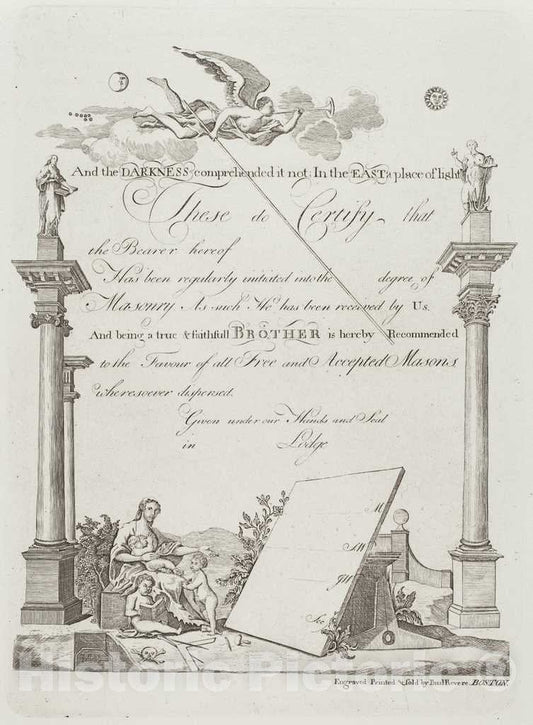 And the DARKNESS comprehended it not In the EAST a place of light
These do Certify that
the Bearer hereof
Has been regularly initiated into the degree of
Masonry As such He has been received by Us.
And being a true & faithfull BROTHER is hereby Recommended
to the Favour of all Free and Accepted Masons
wheresoever dispersed.
Given under our Hands and Seal
in Lodge
M
SW
JW
Sec
Engraved Printed & Sold by Paul Revere BOSTON.
Historic Pictoric